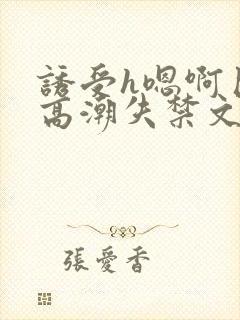 誘受h嗯啊
高潮失禁文
張愛香